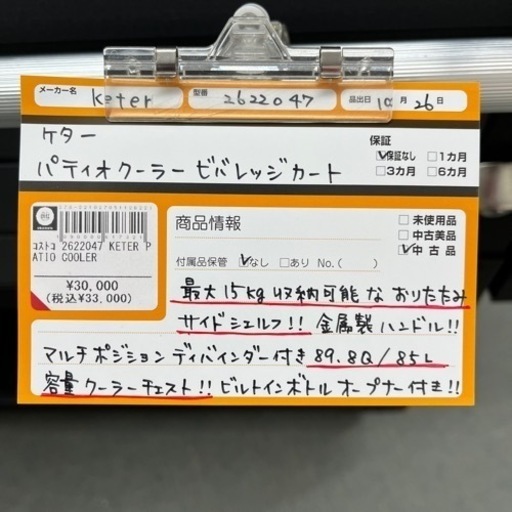 メーカー名 Keter 型番 2622047 品出日 10月26日
ケター
パティオクーラー ビバレッジカート
保証
☑保証なし □1カ月
□3カ月 □6カ月
コストコ 2622047 KETER P
ATIO COOLER
¥30,000
(税込¥33,000)
商品情報
□未使用品
□中古美品
☑中古品
付属品保管 ☑なし □あり No.( )
最大15kg収納可能なおりたたみ
サイドシェルフ!! 金属製ハンドル!!
マルチポジションディバインダー付き 89.8Q/85L
容量クーラーチェスト!! ビルトインボトルオープナー付き!!